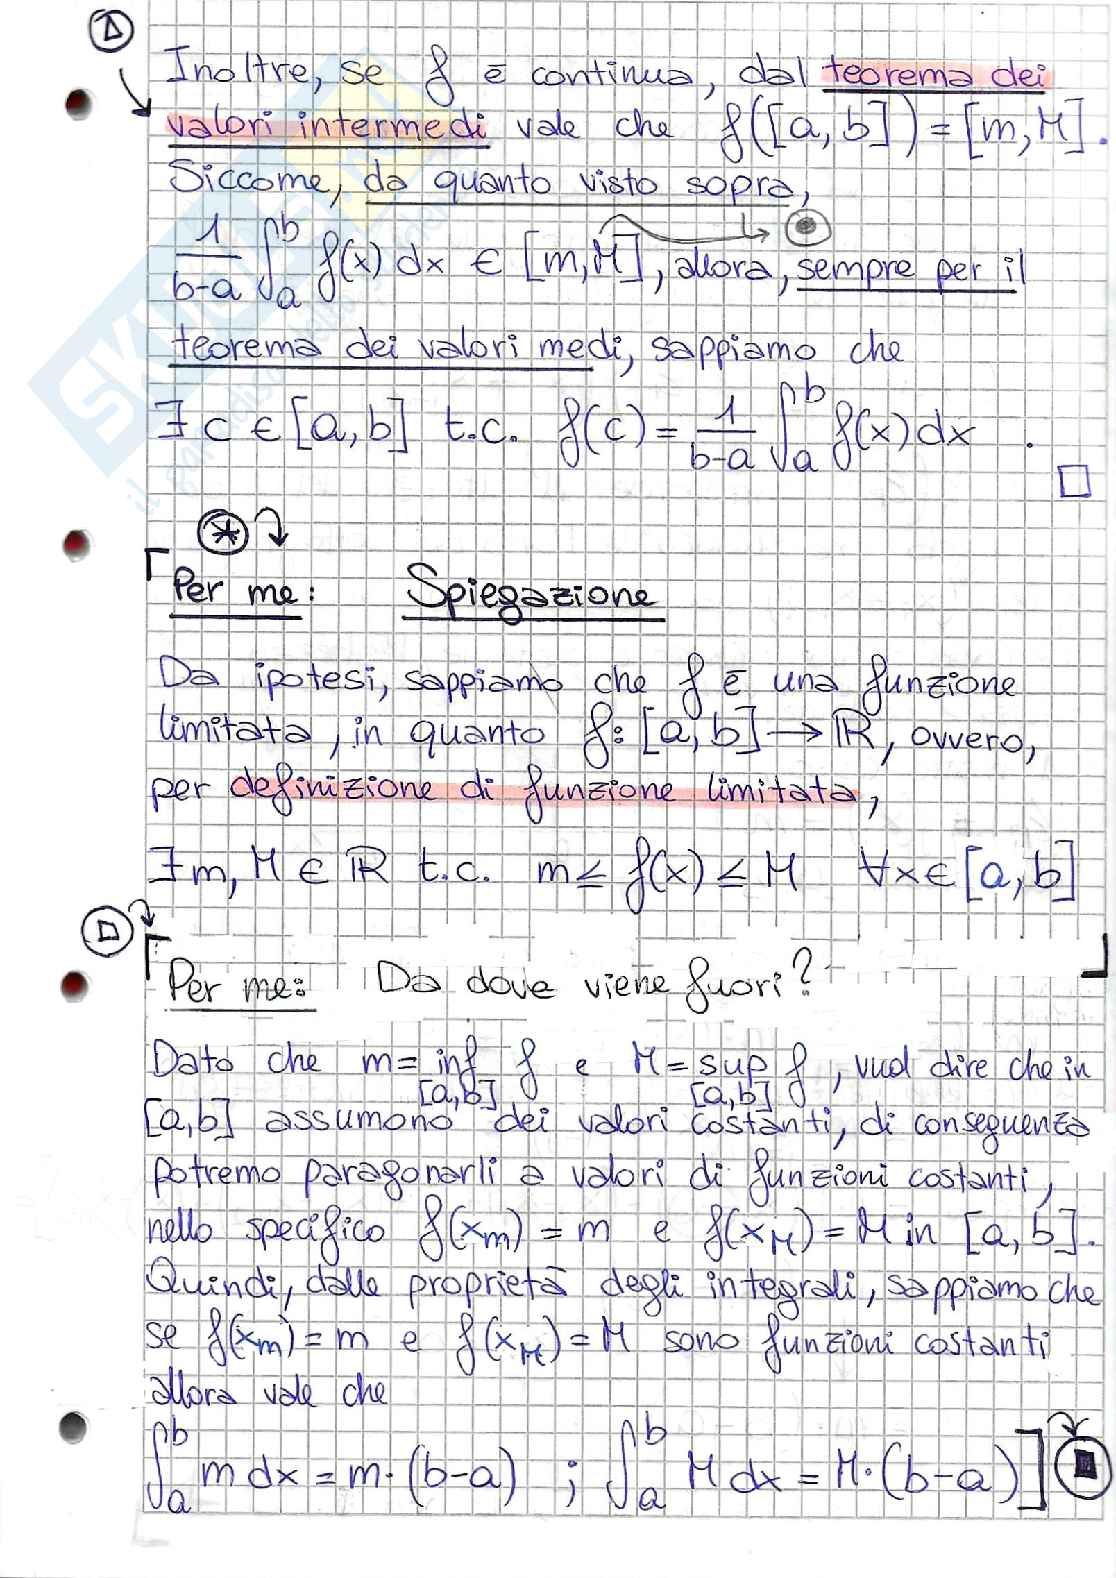 Inoltre, se f è continua, dal teorema dei
valori intermedi vale che f([a,b]) = [m,M].
Siccome, da quanto visto sopra,
1/(b-a) ∫_a^b f(x) dx ∈ [m,M], allora, sempre per il
teorema dei valori medi, sappiamo che
∃ c ∈ [a,b] t.c. f(c) = 1/(b-a) ∫_a^b f(x) dx .
Per me: Spiegazione
Da ipotesi, sappiamo che f è una funzione
limitata, in quanto f: [a,b] → ℝ, ovvero,
per definizione di funzione limitata,
∃ m, M ∈ ℝ t.c. m ≤ f(x) ≤ M ∀x ∈ [a,b]
Per me: Da dove viene fuori?
Dato che m = inf_[a,b] f e M = sup_[a,b] f, vuol dire che in
[a,b] assumono dei valori costanti, di conseguenza
potremo paragonarli a valori di funzioni costanti,
nello specifico f(x_m) = m e f(x_M) = M in [a,b].
Quindi, dalle proprietà degli integrali, sappiamo che
se f(x_m) = m e f(x_M) = M sono funzioni costanti
allora vale che
∫_a^b m dx = m·(b-a) ; ∫_a^b M dx = M·(b-a)]